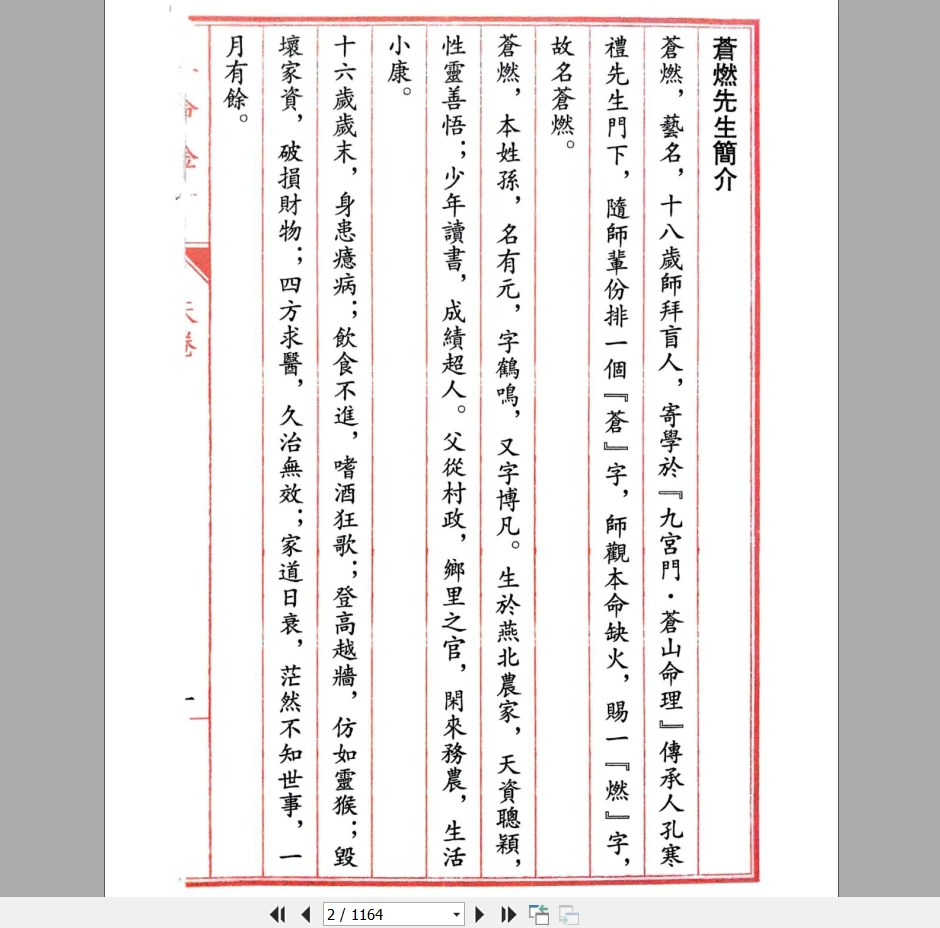 蒼燃先生簡介
蒼燃，藝名，十八歲師拜盲人，寄學於『九宮門·蒼山命理』傳承人孔寒
禮先生門下，隨師輩份排一個『蒼』字，師觀本命缺火，賜一『燃』字，
故名蒼燃。
蒼燃，本姓孫，名有元，字鶴鳴，又字博凡。生於燕北農家，天資聰穎，
性靈善悟；少年讀書，成績超人。父從村政，鄉里之官，閑來務農，生活
小康。
十六歲歲末，身患癔病；飲食不進，嗜酒狂歌；登高越牆，仿如靈猴；毀
壞家資，破損財物；四方求醫，久治無效；家道日衰，茫然不知世事，一
月有餘。
天卷
一
2 / 1164